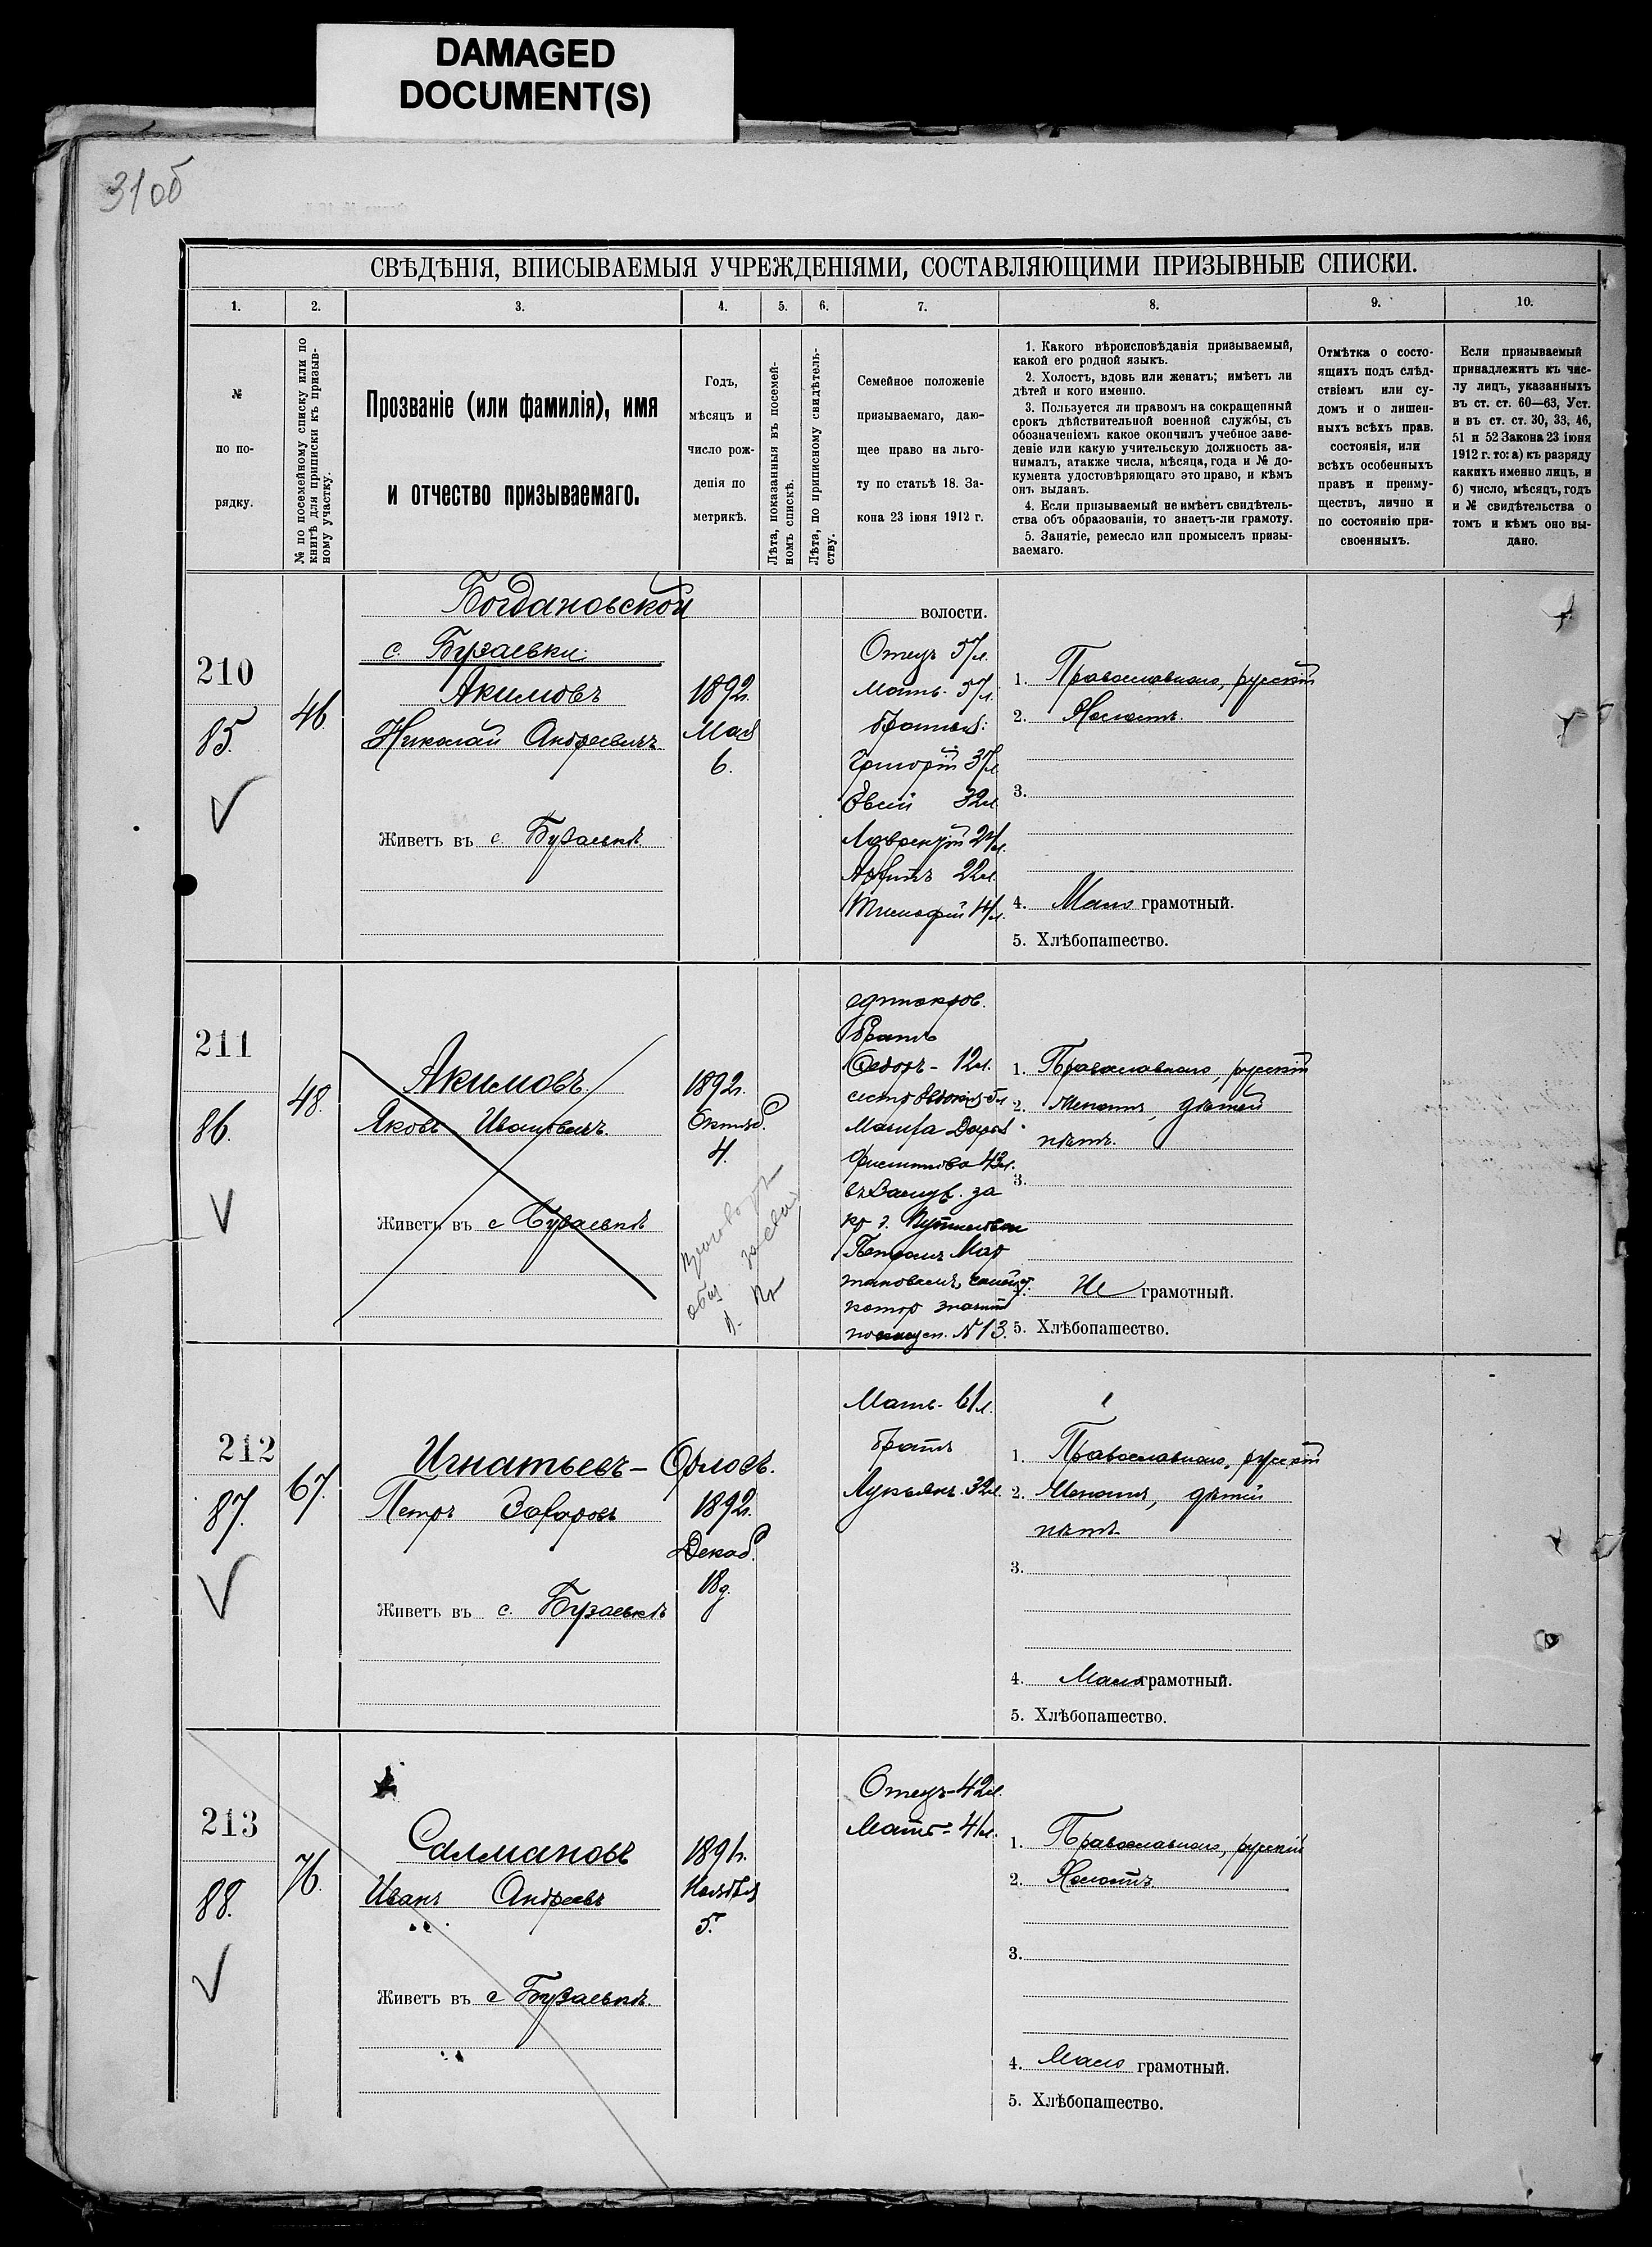 DAMAGED
DOCUMENT(S)
31об
СВѢДѢНІЯ, ВПИСЫВАЕМЫЯ УЧРЕЖДЕНІЯМИ, СОСТАВЛЯЮЩИМИ ПРИЗЫВНЫЕ СПИСКИ.
1. 2. 3. 4. 5. 6. 7. 8. 9. 10.
№
по по-
рядку.
№ по посемейному списку или по
книгѣ для приписки къ призыв-
ному участку.
Прозваніе (или фамилія), имя
и отчество призываемаго.
Годъ,
мѣсяцъ и
число рож-
денія по
метрикѣ.
Лѣта, показанныя въ посемей-
номъ спискѣ.
Лѣта, по приписному свидѣтель-
ству.
Семейное положеніе
призываемаго, даю-
щее право на льго-
ту по статьѣ 18. За-
кона 23 іюня 1912 г.
1. Какого вѣроисповѣданія призываемый,
какой его родной языкъ.
2. Холостъ, вдовъ или женатъ; имѣетъ ли
дѣтей и кого именно.
3. Пользуется ли правомъ на сокращенный
срокъ дѣйствительной военной службы, съ
обозначеніемъ какое окончилъ учебное заве-
деніе или какую учительскую должность за-
нималъ, атакже числа, мѣсяца, года и № до-
кумента удостовѣряющаго это право, и кѣмъ
онъ выданъ.
4. Если призываемый не имѣетъ свидѣтель-
ства объ образованіи, то знаетъ-ли грамоту.
5. Занятіе, ремесло или промыселъ призы-
ваемаго.
Отмѣтка о состо-
ящихъ подъ слѣд-
ствіемъ или су-
домъ и о лишен-
ныхъ всѣхъ прав.
состоянія, или
всѣхъ особенныхъ
правъ и преиму-
ществъ, лично и
по состоянію при-
своенныхъ.
Если призываемый
принадлежитъ къ чис-
лу лицъ, указанныхъ
въ ст. ст. 60—63, Уст.
и въ ст. ст. 30, 33, 46,
51 и 52 Закона 23 іюня
1912 г. то: а) къ разряду
какихъ именно лицъ, и
б) число, мѣсяцъ, годъ
и № свидѣтельства о
томъ и кѣмъ оно вы-
дано.
Богдановской волости.
с. Бузаевки
210
85.
46.
Акимовъ
Николай Андреевичъ
Живетъ въ с Бузаевкѣ.
1892г.
Мая
6.
Отецъ 57л.
Мать. 57л.
братья:
Григорій 37л.
Евсей 32л.
Лаврентій 24л.
22л.
Тимофей 14л.
1. Православнаго, русскій
2. Холостъ.
3.
4. Мало грамотный.
5. Хлѣбопашество.
211
86.
48.
Акимовъ
Яковъ Ивановичъ.
Живетъ въ с Бузаевкѣ
1892г.
Октяб.
4.
единокров.
Братъ
Федоръ - 12л.
Мачиха Дарья
43л.
за
Петромъ
№ 13.
1. Православнаго, русскій
2. Женатъ, дѣтей
нѣтъ.
3.
4. Не грамотный.
5. Хлѣбопашество.
212
87.
67.
Игнатьевъ - Орловъ.
Петръ Захаровъ
Живетъ въ с. Бузаевкѣ
1892г.
Декаб.
18д.
Мать - 61л.
братъ
Лукьянъ. 32л.
1. Православнаго, русскій
2. Женатъ, дѣтей
нѣтъ
3.
4. Мало грамотный.
5. Хлѣбопашество.
213
88.
76.
Салмановъ
Иванъ Андреевъ
Живетъ въ с Бузаевкѣ.
1891г.
Ноября
5.
Отецъ - 42л.
Мать - 41л.
1. Православнаго, русскій
2. Холостъ.
3.
4. Мало грамотный.
5. Хлѣбопашество.